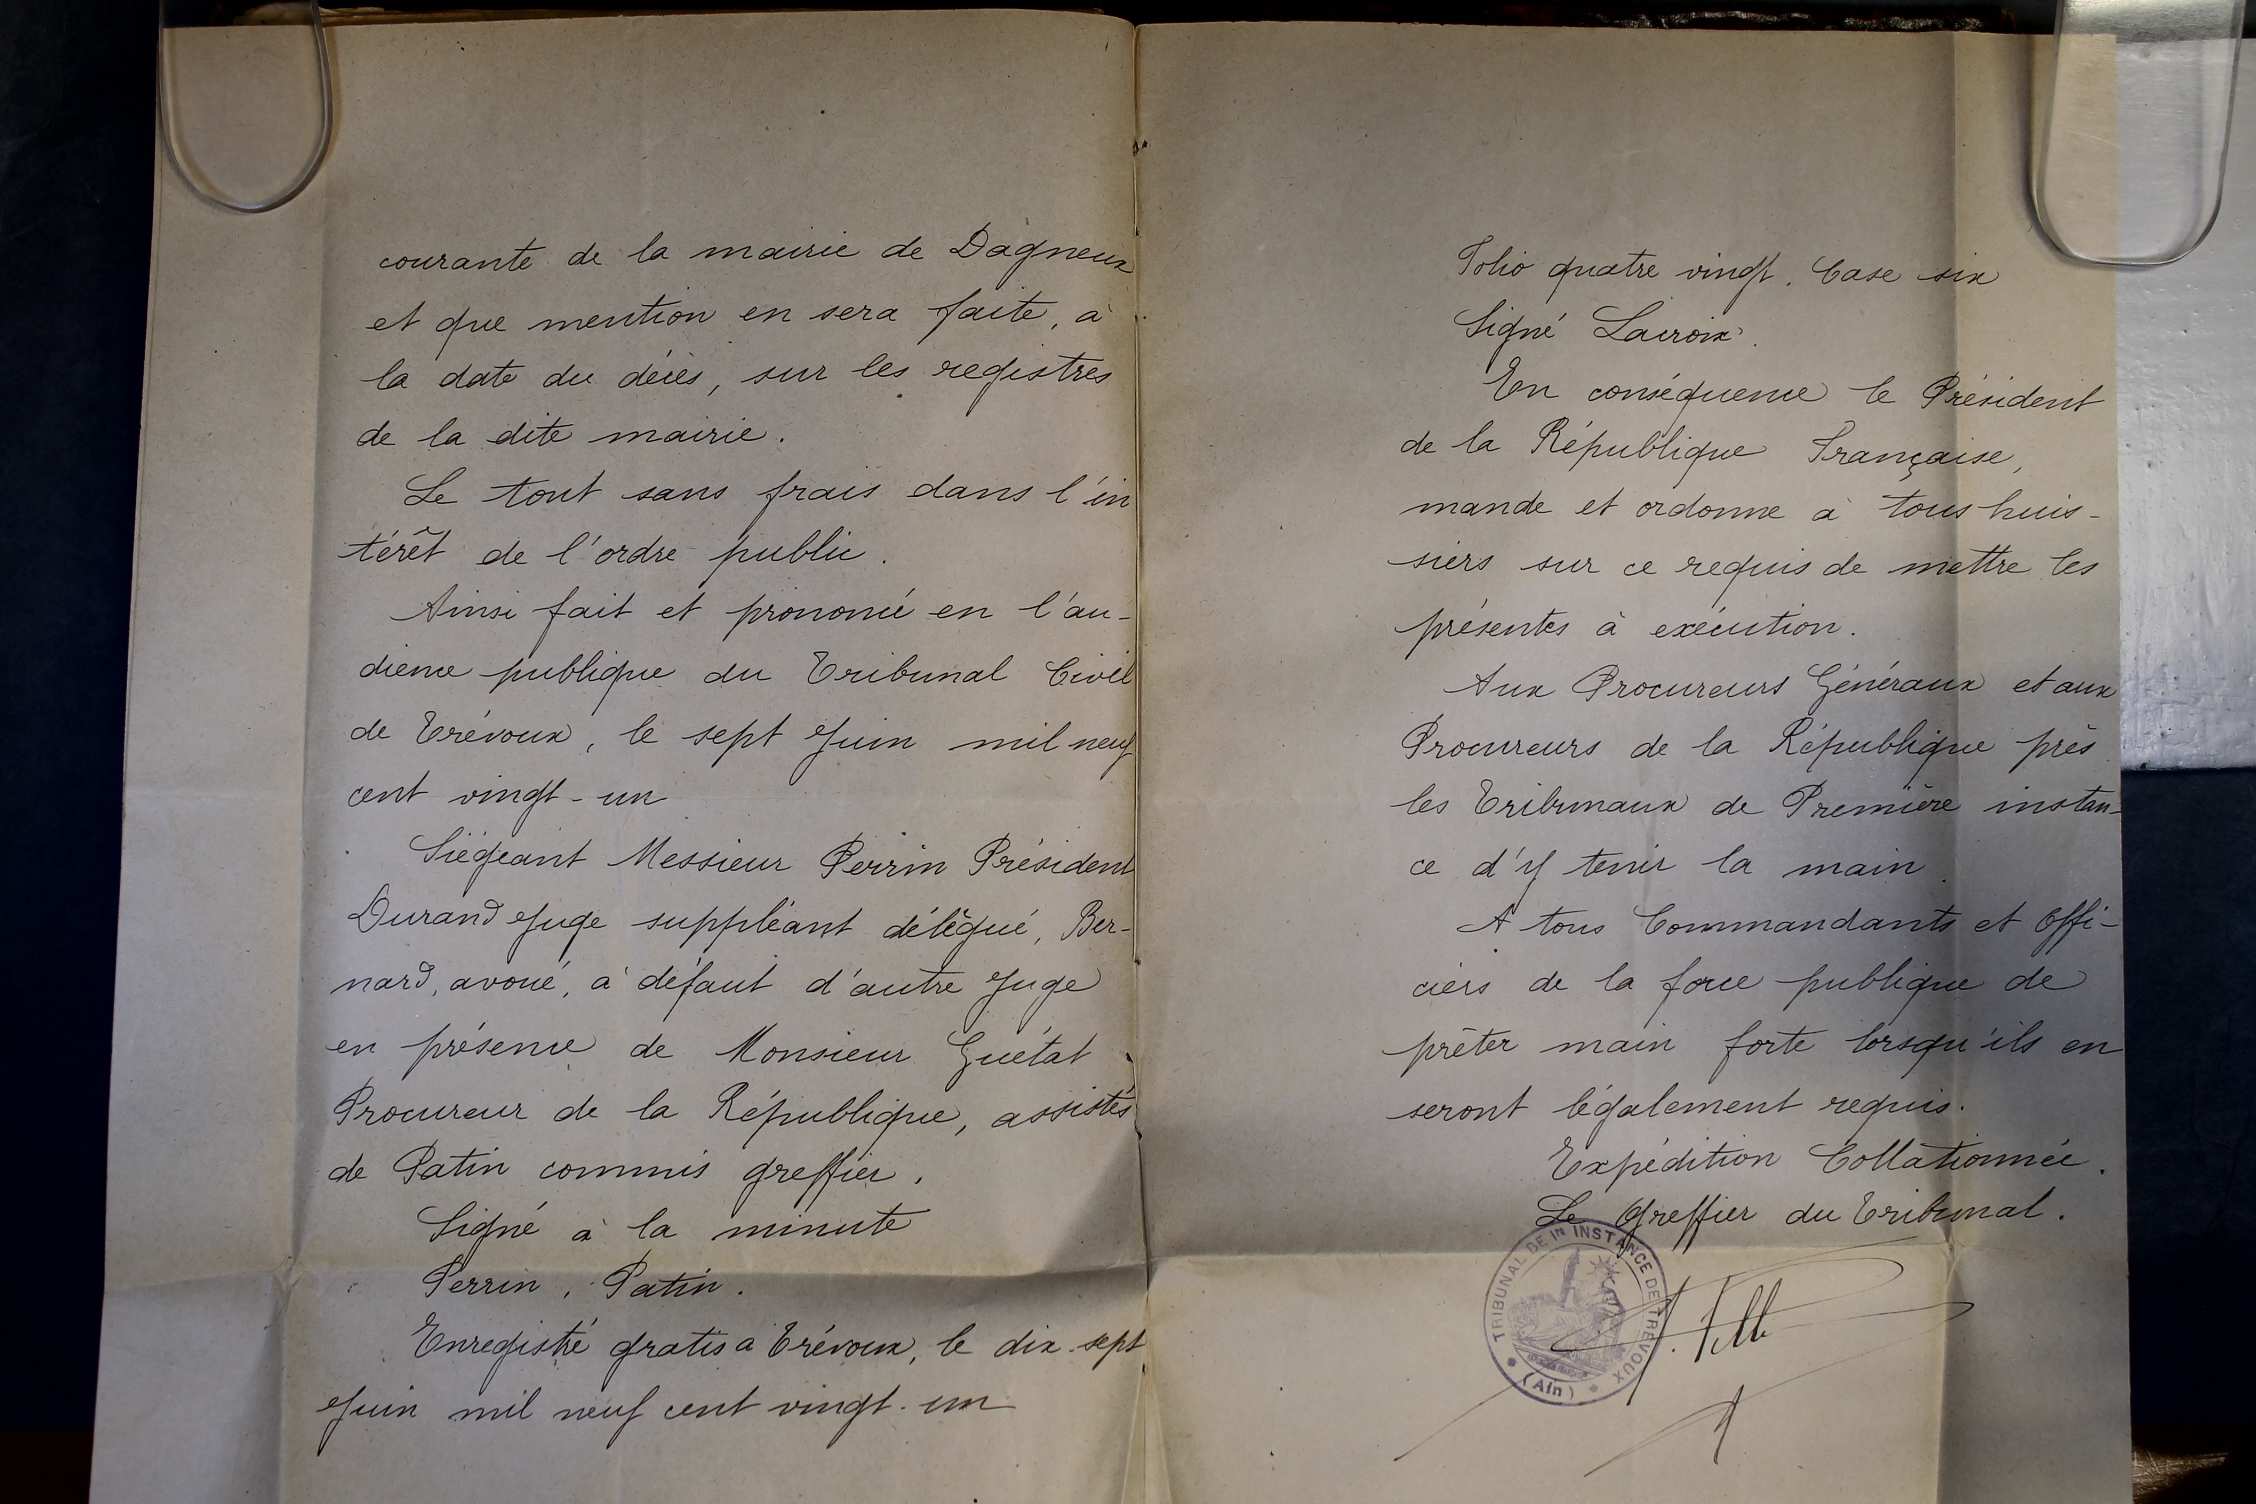 courante de la mairie de Dagneux
et que mention en sera faite, à
la date du décès, sur les registres
de la dite mairie.
Le tout sans frais dans l'in
térêt de l'ordre public.
Ainsi fait et prononcé en l'au-
dience publique du Tribunal Civil
de Trévoux, le sept Juin mil neuf
cent vingt-un
Siégeant Messieur Perrin Président
Durand Juge suppléant délégué, Ber-
nard, avoué, à défaut d'autre Juge
en présence de Monsieur Guétat
Procureur de la République, assistés
de Patin commis greffier.
Signé à la minute
Perrin, Patin.
Enregistré gratis a Trévoux, le dix sept
Juin mil neuf cent vingt-un
Folio quatre vingt. Case six
Signé Lacroix.
En conséquence le Président
de la République Française,
mande et ordonne à tous huis-
siers sur ce requis de mettre les
présentes à exécution.
Aux Procureurs Généraux et aux
Procureurs de la République près
les Tribunaux de Première instan-
ce d'y tenir la main.
A tous Commandants et Offi-
ciers de la force publique de
prêter main forte lorsqu'ils en
seront légalement requis.
Expédition Collationnée.
Le Greffier du Tribunal.
TRIBUNAL DE 1re INSTANCE DE TRÉVOUX
(Ain)